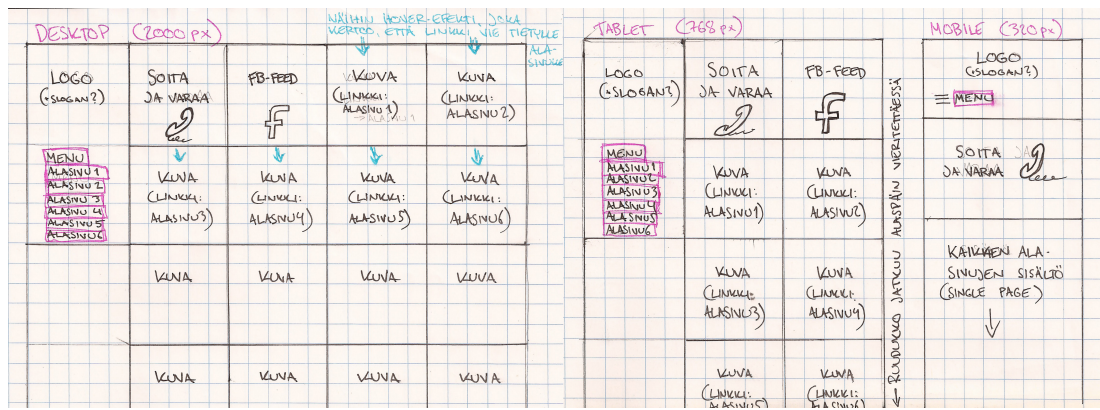 DESKTOP (2000 px)
NÄIHIN HOVER-EFEKTI, JOKA
KERTOO, ETTÄ LINKKI VIE TIETYLLE
ALA-
SIVULLE
LOGO
(+SLOGAN?)
SOITA
JA VARAA
FB-FEED
f
KUVA
(LINKKI:
ALASIVU 1)
KUVA
(LINKKI:
ALASIVU2)
MENU
ALASIVU 1
ALASIVU 2
ALASIVU 3
ALASIVU 4
ALASIVU 5
ALASIVU6
KUVA
(LINKKI:
ALASIVU3)
KUVA
(LINKKI:
ALASIVU4)
KUVA
(LINKKI:
ALASIVU5)
KUVA
(LINKKI:
ALASIVU6)
KUVA
KUVA
KUVA
KUVA
KUVA
KUVA
KUVA
KUVA
TABLET (768 px)
LOGO
(+SLOGAN?)
SOITA
JA VARAA
FB-FEED
f
MENU
ALASIVU1
ALASIVU2
ALASIVU3
ALASIVU4
ALASIVU5
ALASIVU6
KUVA
(LINKKI:
ALASIVU1)
KUVA
(LINKKI:
ALASIVU2)
KUVA
(LINKKI:
ALASIVU3)
KUVA
(LINKKI:
ALASIVU4)
KUVA
(LINKKI:
ALASIVU5)
KUVA
(LINKKI:
ALASIVU6)
← RUUDUKKO JATKUU ALASPÄIN VIERITETTÄESSÄ
MOBILE (320 px)
LOGO
(+SLOGAN?)
MENU
SOITA
JA VARAA
KAIKKIEN ALA-
SIVUJEN SISÄLTÖ
(SINGLE PAGE)